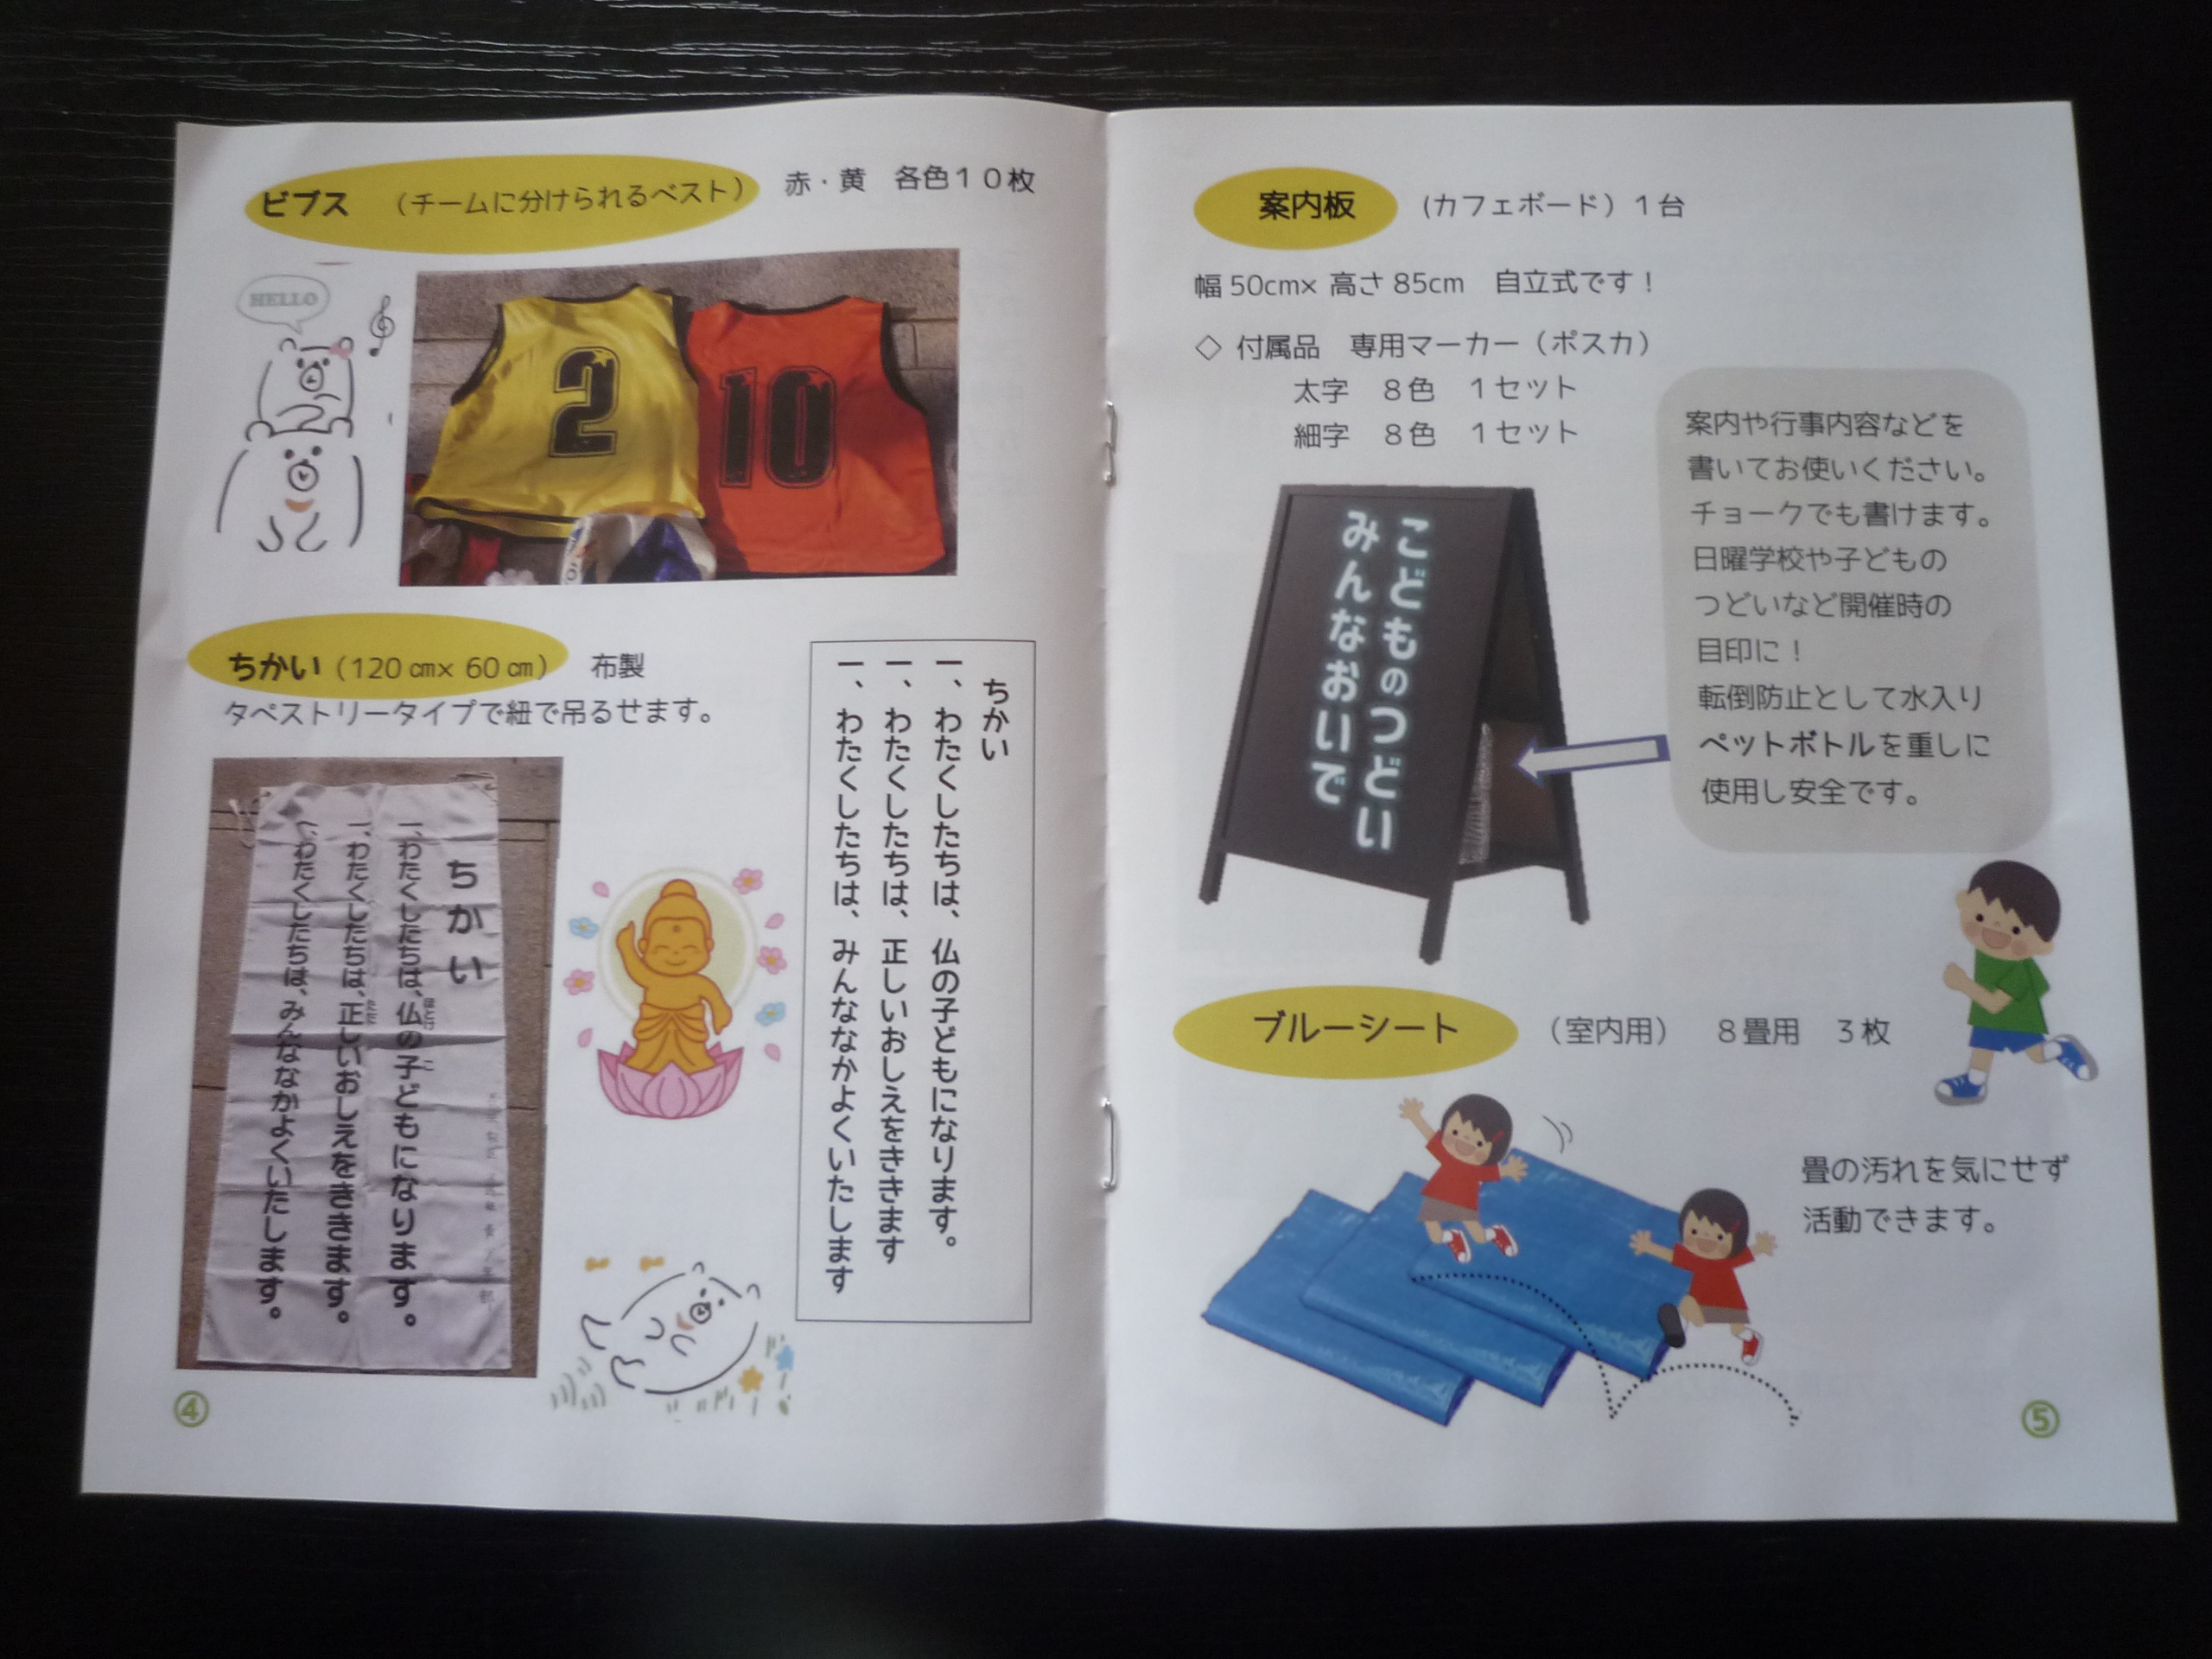 ビブス （チームに分けられるベスト） 赤・黄 各色１０枚
HELLO
2
10
ちかい（120㎝× 60㎝） 布製
タペストリータイプで紐で吊るせます。
ちかい
一、わたくしたちは、仏の子どもになります。
一、わたくしたちは、正しいおしえをききます。
一、わたくしたちは、みんななかよくいたします。
ちかい
一、わたくしたちは、仏の子どもになります。
一、わたくしたちは、正しいおしえをききます
一、わたくしたちは、みんななかよくいたします
④
案内板 （カフェボード）１台
幅50cm× 高さ85cm 自立式です！
◇ 付属品 専用マーカー（ポスカ）
太字 ８色 １セット
細字 ８色 １セット
案内や行事内容などを
書いてお使いください。
チョークでも書けます。
日曜学校や子どもの
つどいなど開催時の
目印に！
転倒防止として水入り
ペットボトルを重しに
使用し安全です。
こどものつどい
みんなおいで
ブルーシート （室内用） ８畳用 ３枚
畳の汚れを気にせず
活動できます。
⑤